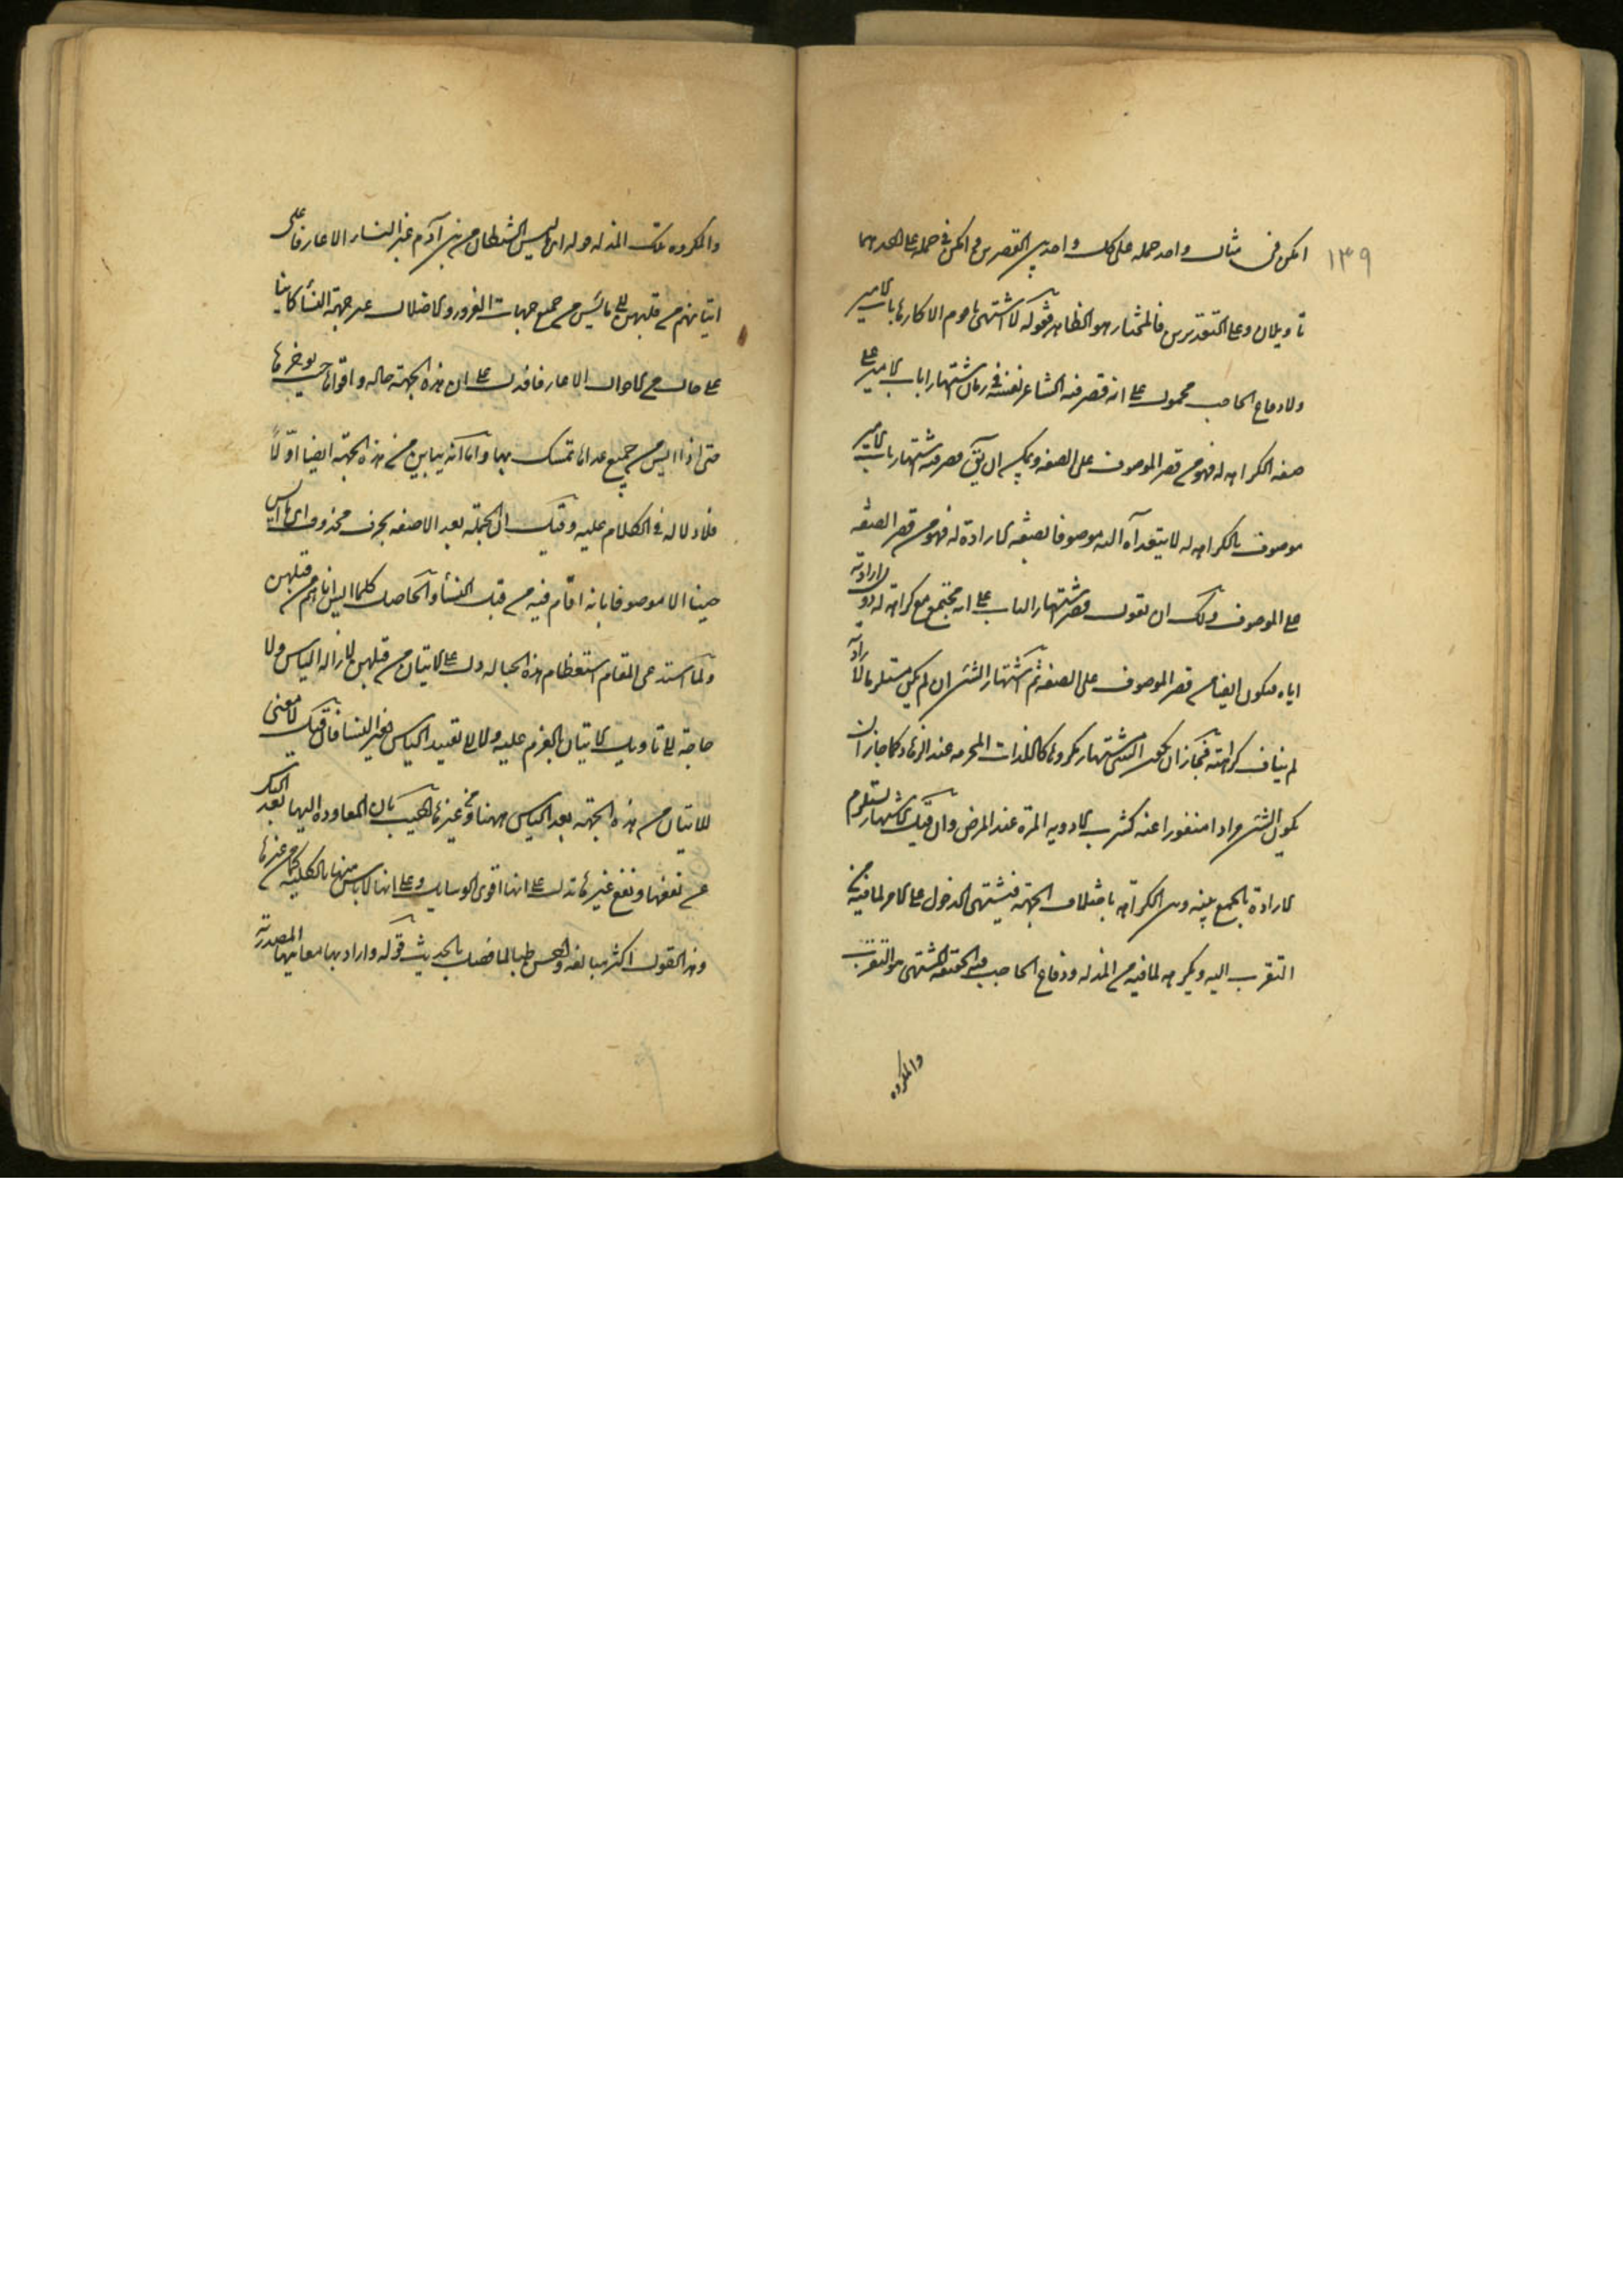 ١٣٩
امكن في مثال واحد حمله على كل واحد من القصرين او امكن في حمله على احدهما
تاويلان وعلى التقديرين فالمختار هو الظاهر فقوله لا اشتهى يا قوم الا كارها باب الامير
ولا دفاع الحاجب محمول على انه قصر فيه الشاعر نفسه في زمان اشتهار باب الامير على
صفة الكراهه له فهو من قصر الموصوف على الصفه ويمكن ان يق قصر فيه اشتهار باب الامير
موصوف بالكراهه له لا يتعداه اليه موصوفا بصفه الارادة له فهو من قصر الصفه
على الموصوف ولك ان تقول قصر اشتهار الباب على انه مجتمع مع كراهته له دون ارادته
اياه فيكون ايضا من قصر الموصوف على الصفه ثم اشتهار الشئ ان لم يكن مستلزما لارادته
لم يناف كراهته فجاز ان يكون الشئ مشتهار مكروها كاللذات المحرمه عند الزهاد كما جاز ان
يكون الشئ مرادا منفورا عنه كشرب الادويه المرة عند المرض وان قيل الاشتهار يستلزم
الارادة بالجمع بينه وبين الكراهه باختلاف الجهته فيشتهى الدخول على الامير لما فيه من
التقرب اليه ويكرهه لما فيه من المذله ودفاع الحاجب فبالحقيقه المشتهى هو التقرب
والمكروه
والمكروه تلك المذله قوله اى ما ايس الشيطان من بنى آدم غير النساء الا عازما على
اتيانهم من قبلهن اى ما ييس من جميع جهات الغرور والاضلال غير جهة النسأ كاينا
على حال من الاحوال الا عازما فدل على ان هذه الجهته حاله واقواها حيث يوخرها
حتى اذا ايس من جميع عداها تمسك بها واما انه ييس من هذه الجهته ايضا او لا
فلا دلاله في الكلام عليه وقيل ان الجمله بعد الا صفه بحرف محذوف اى ما ايس
حينا الا موصوفا بانه اقام فيه من قبل النسأ والحاصل كلما ايس اتاهم من قبلهن
ولما استدعى المقام استعظام هذه الحباله دل على الاتيان من قبلهن لازاله الياس ولا
حاجة الى تاويل الاتيان بالعزم عليه ولا الى تقييد الياس بغير النسا فان قيل لا معنى
للاتيان من هذه الجهته بعد الياس منها ومن غيرها اجيب بان المعاوده اليها بعد الياس
عن نفعها ونفع غيرها تدل على انها اقوى الوسايل وعلى انها لا ياس منها بالكليه كما من غيرها
وهذا القول اكثر مبالغه واحسن طباقا لما فصل بالحديث قوله واراد بها معانيها المصدريه